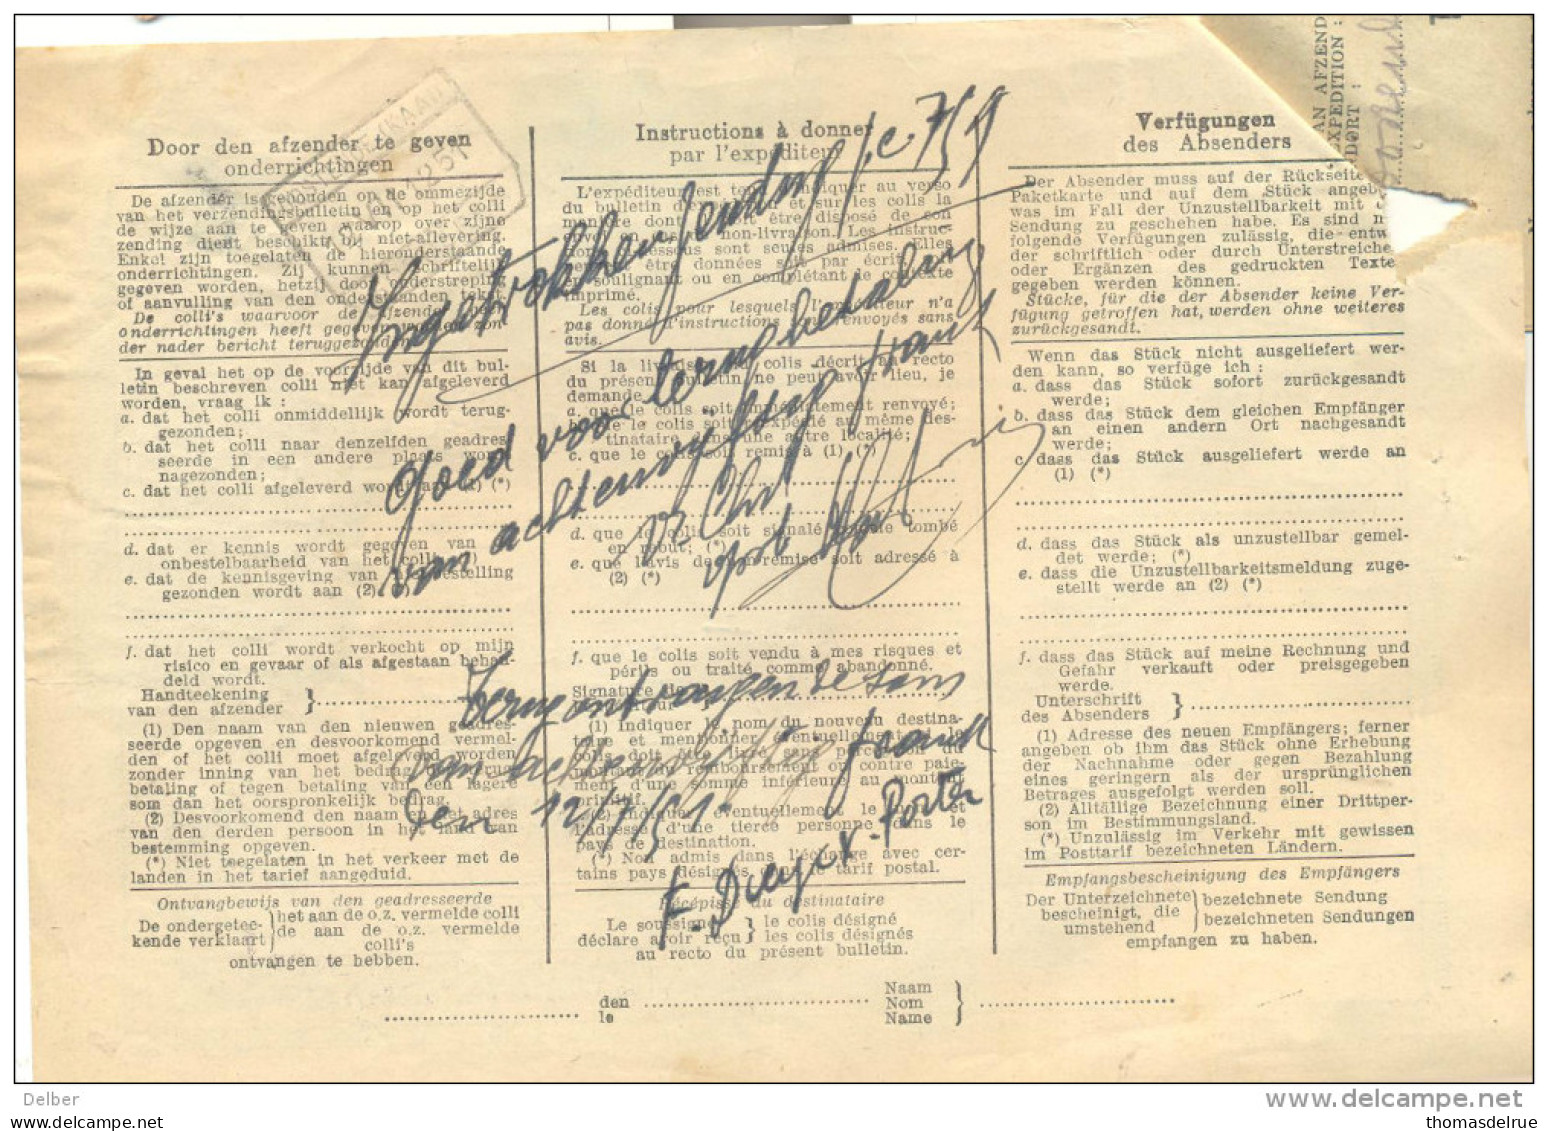 AN AFZEND
EXPEDITION :
Door den afzender te geven
onderrichtingen
De afzender is gehouden op de ommezijde
van het verzendingsbulletin en op het colli
de wijze aan te geven waarop over zijne
zending dient beschikt bij niet-aflevering.
Enkel zijn toegelaten de hieronderstaande
onderrichtingen. Zij kunnen schriftelijk
gegeven worden, hetzij door onderstreping
of aanvulling van den onderstaanden tekst.
De colli's waarvoor de afzender geen
onderrichtingen heeft gegeven worden zon-
der nader bericht teruggezonden.
In geval het op de voorzijde van dit bul-
letin beschreven colli niet kan afgeleverd
worden, vraag ik :
a. dat het colli onmiddellijk wordt terug-
gezonden;
b. dat het colli naar denzelfden geadres-
seerde in een andere plaats wordt
nagezonden;
c. dat het colli afgeleverd wordt aan (1) (*)
d. dat er kennis wordt gegeven van de
onbestelbaarheid van het colli; (*)
e. dat de kennisgeving van niet-bestelling
gezonden wordt aan (2) (*)
f. dat het colli wordt verkocht op mijn
risico en gevaar of als afgestaan behan-
deld wordt.
Handteekening
van den afzender }
(1) Den naam van den nieuwen geadres-
seerde opgeven en desvoorkomend vermel-
den of het colli moet afgeleverd worden
zonder inning van het bedrag der terug-
betaling of tegen betaling van een lagere
som dan het oorspronkelijk bedrag.
(2) Desvoorkomend den naam en het adres
van den derden persoon in het land van
bestemming opgeven.
(*) Niet toegelaten in het verkeer met de
landen in het tarief aangeduid.
Ontvangbewijs van den geadresseerde
De ondergetee-
kende verklaart } het aan de o.z. vermelde colli
de aan de o.z. vermelde
colli's
ontvangen te hebben.
Instructions à donner
par l'expéditeur
L'expéditeur est tenu d'indiquer au verso
du bulletin d'expédition et sur les colis la
manière dont doit être disposé de son
envoi en cas de non-livraison. Les instruc-
tions ci-dessous sont seules admises. Elles
peuvent être données soit par écrit, soit
en soulignant ou en complétant le contexte
imprimé.
Les colis pour lesquels l'expéditeur n'a
pas donné d'instructions sont renvoyés sans
avis.
Si la livraison du colis décrit au recto
du présent bulletin ne peut avoir lieu, je
demande :
a. que le colis soit immédiatement renvoyé;
b. que le colis soit réexpédié au même des-
tinataire dans une autre localité;
c. que le colis soit remis à (1) (*)
d. que le colis soit signalé comme tombé
en rebut; (*)
e. que l'avis de non-remise soit adressé à
(2) (*)
f. que le colis soit vendu à mes risques et
périls ou traité comme abandonné.
Signature de
(1) Indiquer le nom du nouveau destina-
taire et mentionner éventuellement si le
colis doit être livré sans perception du
montant du remboursement ou contre paie-
ment d'une somme inférieure au montant
primitif.
(2) Indiquer éventuellement le nom et
l'adresse d'une tierce personne dans le
pays de destination.
(*) Non admis dans l'échange avec cer-
tains pays désignés dans le tarif postal.
Récépissé du destinataire
Le soussigné
déclare avoir reçu } le colis désigné
les colis désignés
au recto du présent bulletin.
Verfügungen
des Absenders
Der Absender muss auf der Rückseite
Paketkarte und auf dem Stück angeb
was im Fall der Unzustellbarkeit mit
Sendung zu geschehen habe. Es sind n
folgende Verfügungen zulässig, die entw
der schriftlich oder durch Unterstreiche
oder Ergänzen des gedruckten Texte
gegeben werden können.
Stücke, für die der Absender keine Ver-
fügung getroffen hat, werden ohne weiteres
zurückgesandt.
Wenn das Stück nicht ausgeliefert wer-
den kann, so verfüge ich :
a. dass das Stück sofort zurückgesandt
werde;
b. dass das Stück dem gleichen Empfänger
an einen andern Ort nachgesandt
werde;
c. dass das Stück ausgeliefert werde an
(1) (*)
d. dass das Stück als unzustellbar gemel-
det werde; (*)
e. dass die Unzustellbarkeitsmeldung zuge-
stellt werde an (2) (*)
f. dass das Stück auf meine Rechnung und
Gefahr verkauft oder preisgegeben
werde.
Unterschrift
des Absenders }
(1) Adresse des neuen Empfängers; ferner
angeben ob ihm das Stück ohne Erhebung
der Nachnahme oder gegen Bezahlung
eines geringern als der ursprünglichen
Betrages ausgefolgt werden soll.
(2) Alltällige Bezeichnung einer Drittper-
son im Bestimmungsland.
(*) Unzulässig im Verkehr mit gewissen
im Posttarif bezeichneten Ländern.
Empfangsbescheinigung des Empfängers
Der Unterzeichnete
bescheinigt, die
umstehend } bezeichnete Sendung
bezeichneten Sendungen
empfangen zu haben.
Goed voor terugbetaling
van achtenvijftig frank
Terug ontvangen de som
van achtenvijftig frank
Den 12/7/51.
den
le
Naam
Nom
Name }
Delber
www.delcampe.net
thomasdelrue